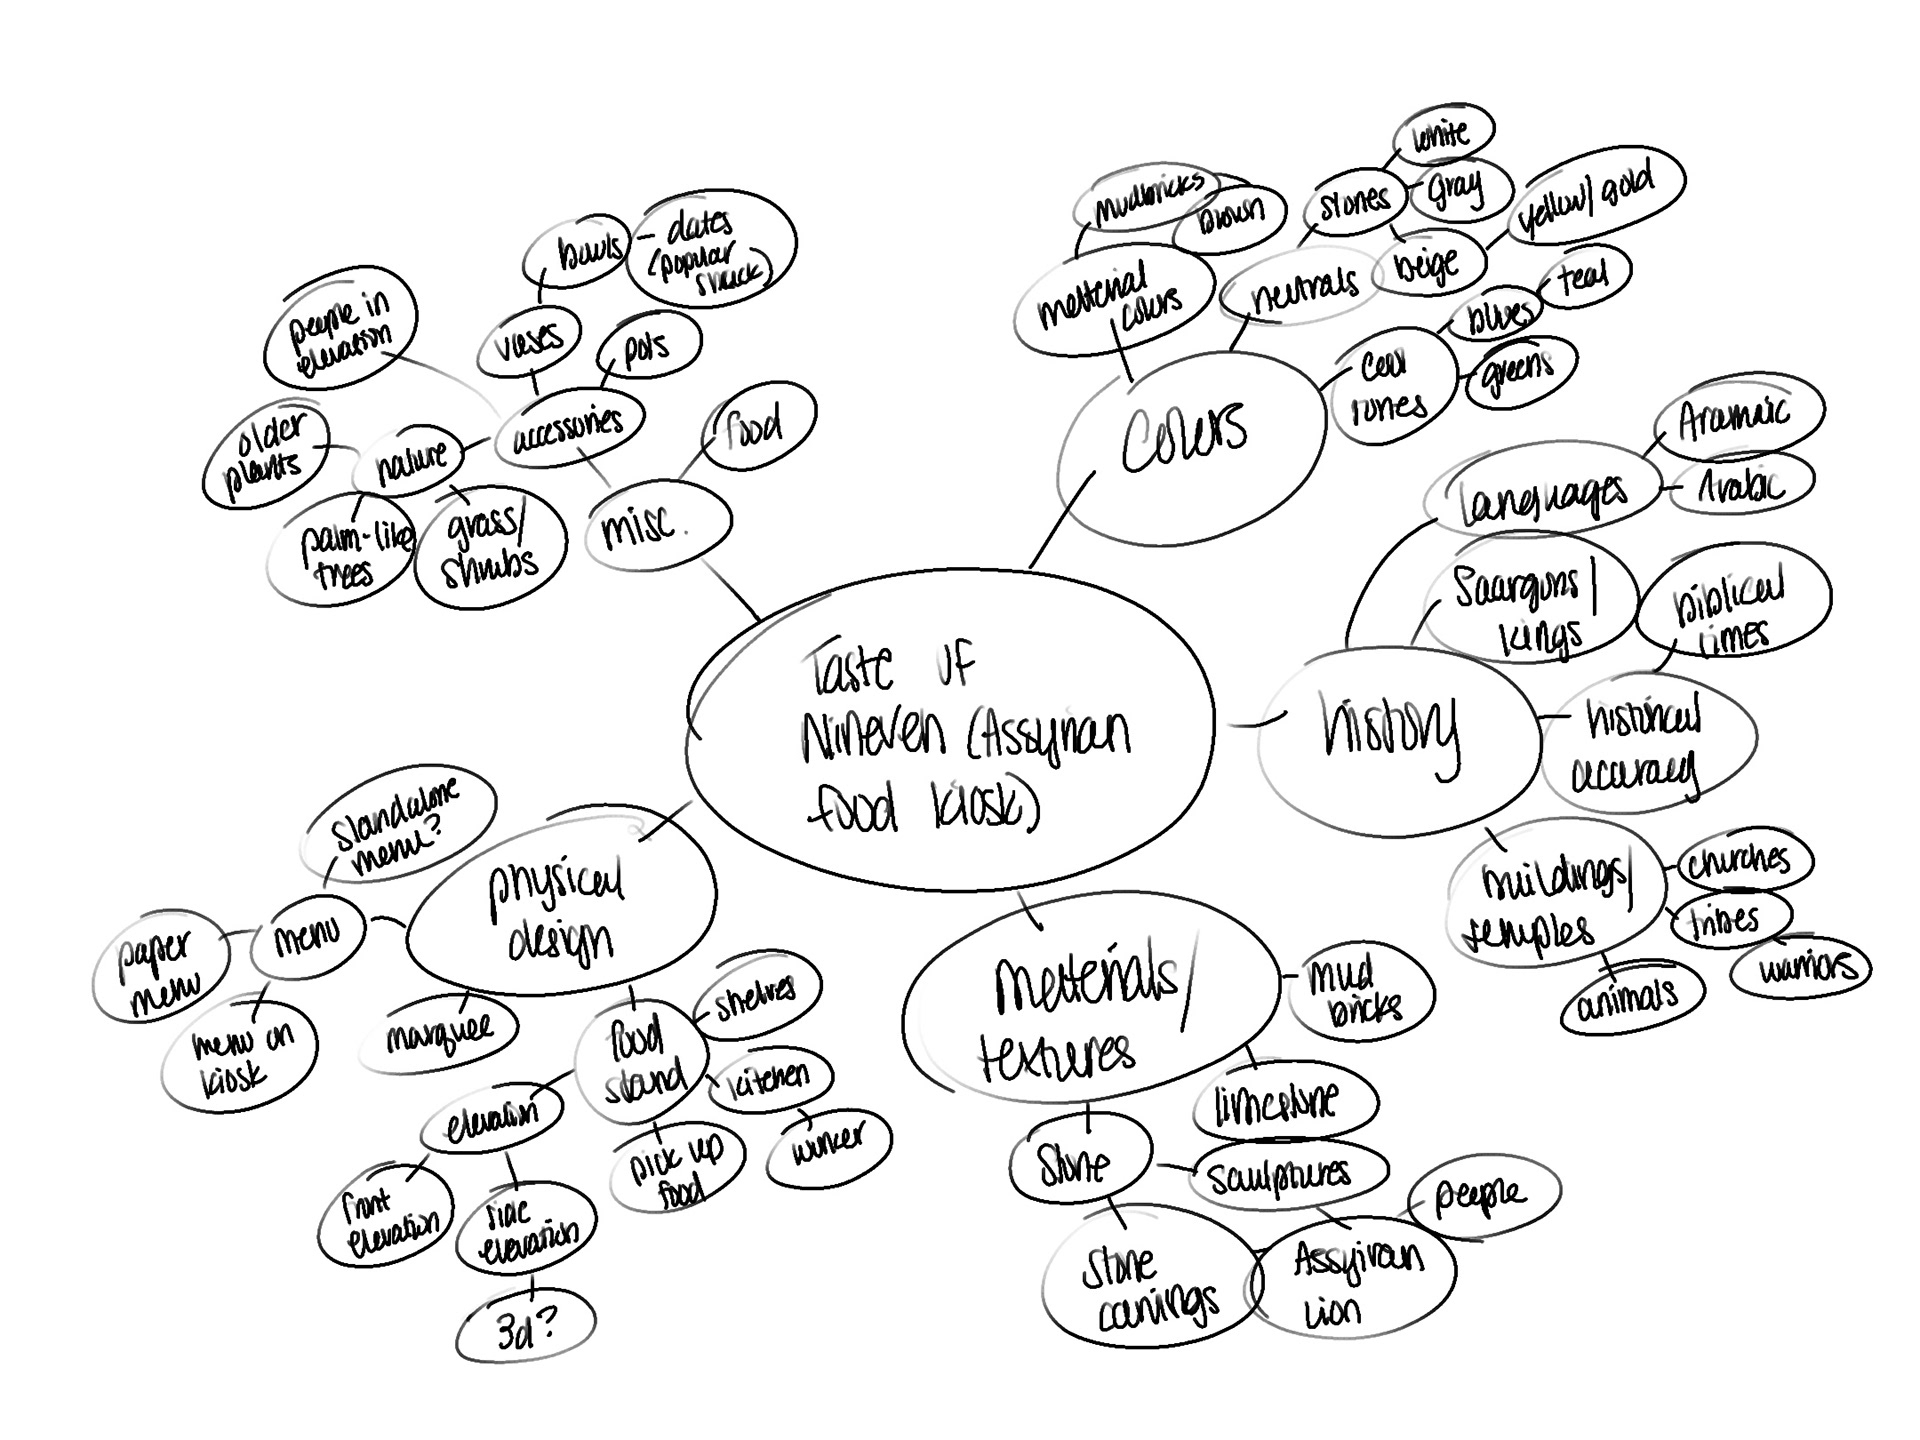 Taste of
Nineveh (Assyrian
food kiosk)
colors
material
colors
mudbricks
brown
neutrals
stones
white
gray
beige
yellow/gold
cool
tones
blues
teal
greens
history
languages
Aramaic
Arabic
Saarguns/
kings
historical
accuracy
biblical
times
buildings/
temples
churches
tribes
warriors
animals
materials/
textures
mud
bricks
limestone
stone
sculptures
stone
carvings
Assyiran
lion
people
physical
design
menu
standalone
menu?
paper
menu
menu on
kiosk
marquee
food
stand
shelves
kitchen
worker
pick up
food
elevation
front
elevation
side
elevation
3d?
misc.
food
accessories
pots
vases
bowls
dates
(popular
snack)
people in
elevation
nature
older
plants
palm-like
trees
grass/
shrubs